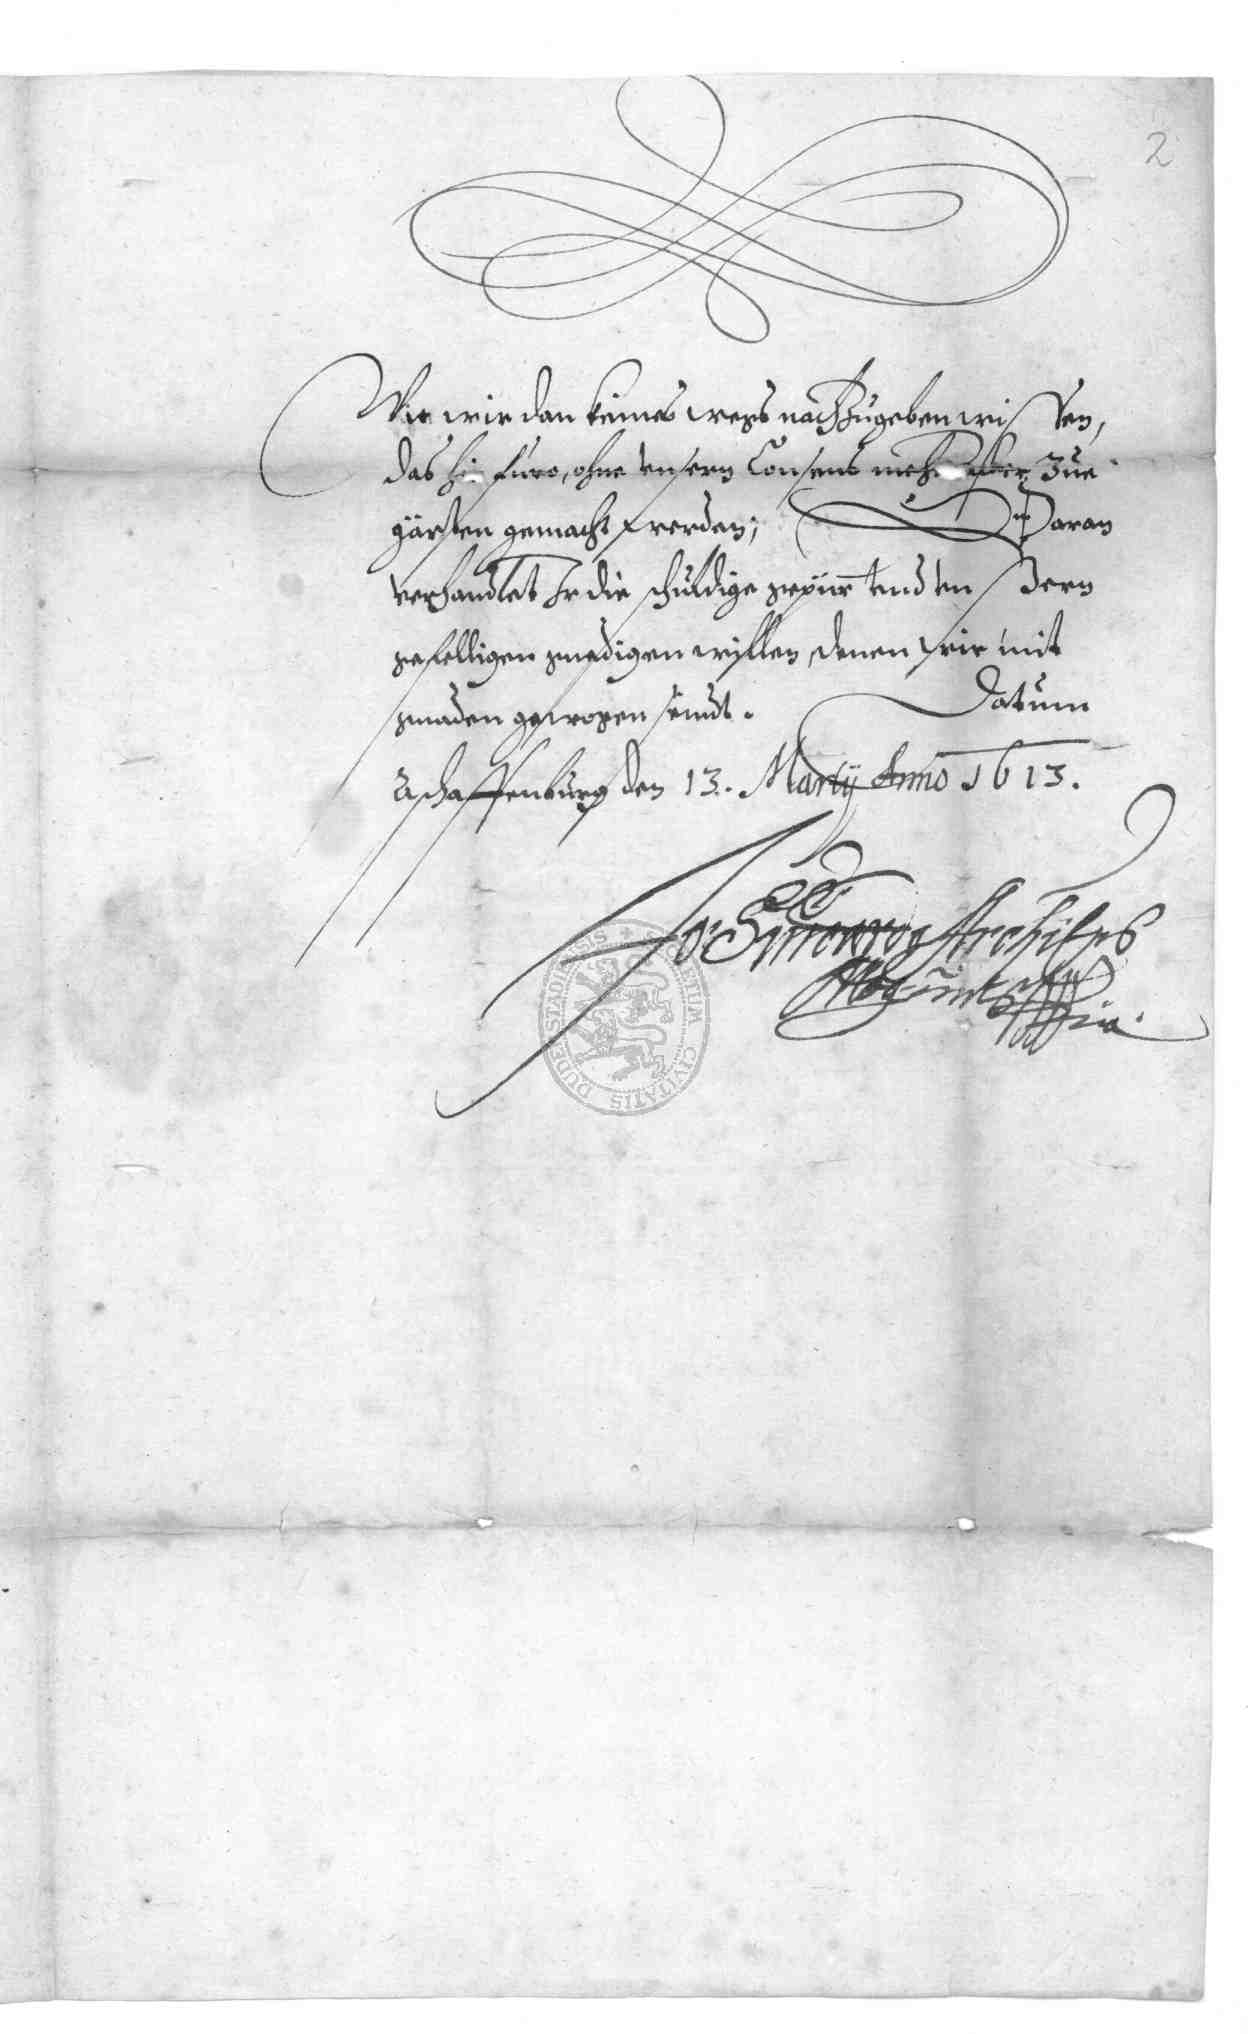 2
Wie wir dan keines wegs nachzugeben wissen,
das hinfüro, ohne unsern Consens mehr zue
gärten gemacht werden; Daran
verhandlet Ir die schuldige gepür und unsern
gefelligen gnedigen willen, denen wir mit
gnaden gewogen seindt. Datum
Aschaffenburg den 13. Martij Anno 1613.
Jo: Schweickardg Archiep͞s
Mogunt
SIGILLUM CIVITATIS DUDERSTADIENSIS